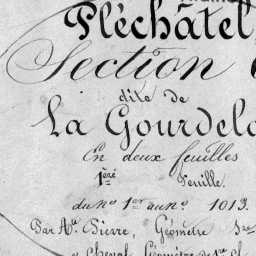 Pléchâtel,
Section
dite de
La Gourdel
En deux feuilles
1ère Feuille.
du N° 1er au N° 1013.
Par Mr. Pierre, Géomètre
et Cheval, Géomètre de 1re Cl